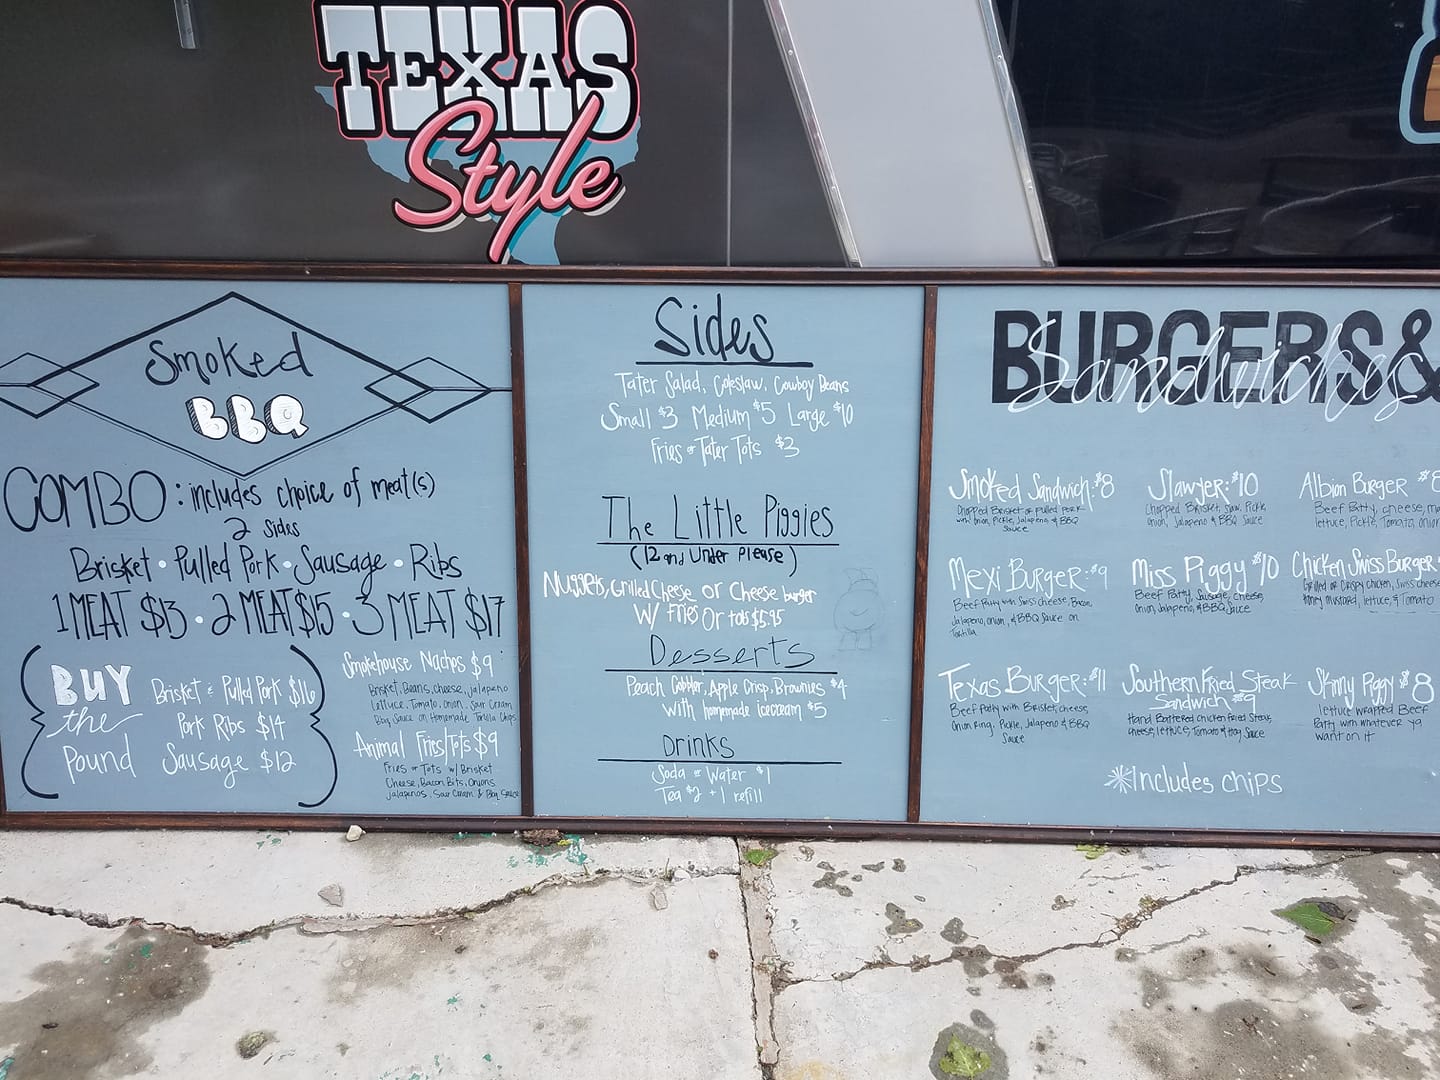 TEXAS
Style
Smoked
BBQ
COMBO: includes choice of meat(s)
2 sides
Brisket • Pulled Pork • Sausage • Ribs
1 MEAT $13 • 2 MEAT $15 • 3 MEAT $17
BUY
the
Pound
Brisket & Pulled Pork $16
Pork Ribs $14
Sausage $12
Smokehouse Nachos $9
Brisket, Beans, cheese, jalapeno
Lettuce, Tomato, Onion, Sour Cream
Bbq Sauce on Homemade Tortilla Chips
Animal Fries/Tots $9
Fries or Tots w/ Brisket
Cheese, Bacon Bits, Onions
Jalapenos, Sour Cream & Bbq Sauce
Sides
Tater Salad, Coleslaw, Cowboy Beans
Small $3 Medium $5 Large $10
Fries or Tater Tots $3
The Little Piggies
(12 and Under Please)
Nuggets, Grilled Cheese or Cheese burger
W/ Fries Or tots $5.95
Desserts
Peach Cobbler, Apple Crisp, Brownies $4
With homemade icecream $5
Drinks
Soda or Water $1
Tea $2 +1 refill
BURGERS &
Sandwiches
Smoked Sandwich: $8
Chopped Brisket or pulled pork
w/ onion, Pickle, Jalapeno & BBQ
Sauce
Slawyer: $10
Chopped Brisket, Slaw, Pickle,
Onion, Jalapeno & BBQ Sauce
Albion Burger $8
Beef Patty, cheese,
lettuce, Pickle, Tomato, onion
Mexi Burger: $9
Beef Patty with Swiss cheese, Bacon,
Jalapeno, onion, & BBQ Sauce on
Tortilla
Miss Piggy $10
Beef Patty, Sausage, Cheese,
Onion, Jalapeno, & BBQ Sauce
Chicken Swiss Burger
Grilled or Crispy chicken, Swiss cheese
Honey mustard, lettuce, & Tomato
Texas Burger: $11
Beef Patty with Brisket, cheese,
Onion Ring, Pickle, Jalapeno & BBQ
Sauce
Southern Fried Steak
Sandwich $9
Hand Battered chicken Fried Steak,
cheese, lettuce, Tomato & Hog Sauce
Skinny Piggy $8
lettuce wrapped Beef
Patty with whatever ya
want on it
*Includes chips